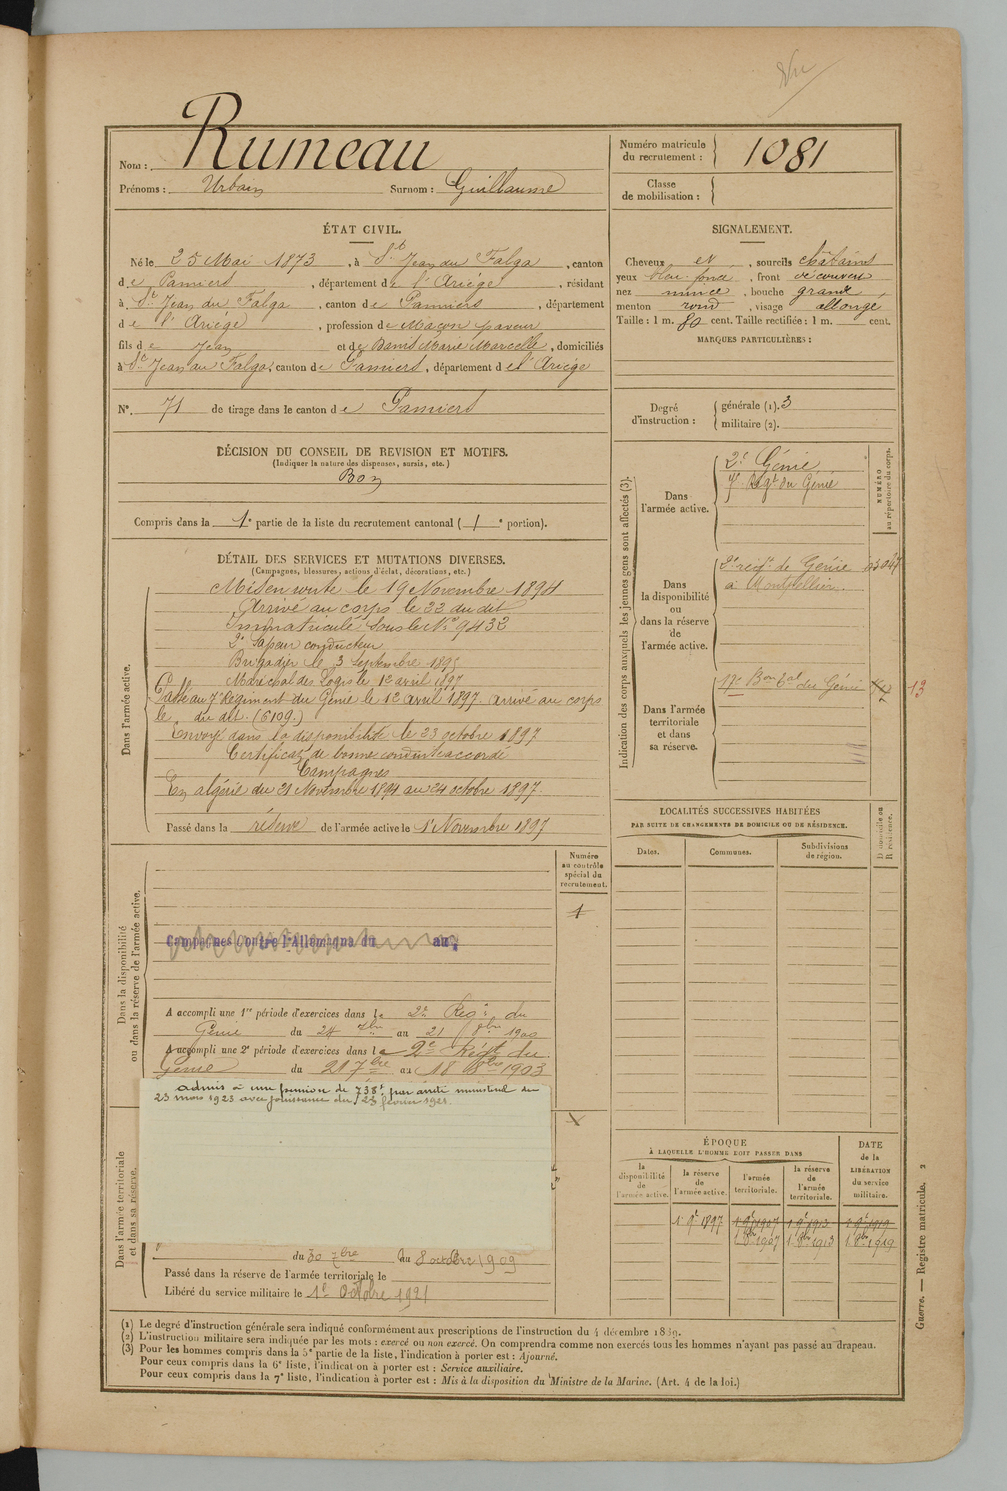 Vu
Nom : Rumeau
Prénoms : Urbain Surnom : Guillaume
Numéro matricule du recrutement : 1081
Classe de mobilisation :
ÉTAT CIVIL.
Né le 25 Mai 1873, à St Jean du Falga, canton
de Pamiers, département de l'Ariège, résidant
à St Jean du Falga, canton de Pamiers, département
de l'Ariège, profession de Maçon paveur
fils de Jean et de Marie Marcelle, domiciliés
à St Jean du Falga, canton de Pamiers, département de l'Ariège
N° 71 de tirage dans le canton de Pamiers
SIGNALEMENT.
Cheveux et, sourcils châtains
yeux bleu foncé, front découvert
nez mince, bouche grande
menton rond, visage allongé
Taille : 1 m. 80 cent. Taille rectifiée : 1 m. cent.
MARQUES PARTICULIÈRES :
Degré d'instruction : générale (1). 3
militaire (2).
DÉCISION DU CONSEIL DE REVISION ET MOTIFS.
(Indiquer la nature des dispenses, sursis, etc.)
Bon
Compris dans la 1e partie de la liste du recrutement cantonal (1e portion).
DÉTAIL DES SERVICES ET MUTATIONS DIVERSES.
(Campagnes, blessures, actions d'éclat, décorations, etc.)
Dans l'armée active.
Mis en route le 19 Novembre 1894
Arrivé au corps le 22 du dit
Immatriculé sous le N° 9432
2e Sapeur conducteur
Brigadier le 3 Septembre 1895
Maréchal des Logis le 12 avril 1897
Passé au 7e Régiment du Génie le 12 avril 1897. arrivé au corps
le du dit. (6109.)
Envoyé dans la disponibilité le 23 octobre 1897
Certificat de bonne conduite accordé
Campagnes
En algérie du 21 Novembre 1894 au 24 octobre 1897.
Passé dans la réserve de l'armée active le 1er Novembre 1897
Indication des corps auxquels les jeunes gens sont affectés (3).
NUMÉRO au répertoire du corps.
Dans l'armée active.
2e Génie
7e Régt du Génie
Dans la disponibilité ou dans la réserve de l'armée active.
2e régt de Génie
à Montpellier
Dans l'armée territoriale et dans sa réserve.
17e Bon tal du Génie
13
LOCALITÉS SUCCESSIVES HABITÉES
PAR SUITE DE CHANGEMENTS DE DOMICILE OU DE RÉSIDENCE.
Dates. Communes. Subdivisions de région. D domicile ou R résidence.
Dans la disponibilité ou dans la réserve de l'armée active.
Numéro au contrôle spécial du recrutement.
1
Campagnes Contre l'Allemagne du au
A accompli une 1re période d'exercices dans le 2e Reg. du
Génie du 24 7bre au 21 8bre 1900
A accompli une 2e période d'exercices dans le 2e Régt du
Génie du 21 7bre au 18 8bre 1903
admis à une pension de 738f par arrêté ministériel du
23 mars 1923 avec jouissance du 23 février 1921.
Dans l'armée territoriale et dans sa réserve.
du 30 7bre au 8 octobre 1909
Passé dans la réserve de l'armée territoriale le
Libéré du service militaire le 1er Octobre 1921
ÉPOQUE
À LAQUELLE L'HOMME DOIT PASSER DANS
DATE de la LIBÉRATION du service militaire.
la disponibilité de l'armée active. la réserve de l'armée active. l'armée territoriale. la réserve de l'armée territoriale.
1 9e 1897 1 9e 1907 1 9e 1913 1 9e 1919
1 8bre 1907 1 8bre 1913 1 8bre 1919
(1) Le degré d'instruction générale sera indiqué conformément aux prescriptions de l'instruction du 4 décembre 1889.
(2) L'instruction militaire sera indiquée par les mots : exercé ou non exercé. On comprendra comme non exercés tous les hommes n'ayant pas passé au drapeau.
(3) Pour les hommes compris dans la 5e partie de la liste, l'indication à porter est : Ajourné.
Pour ceux compris dans la 6e liste, l'indication à porter est : Service auxiliaire.
Pour ceux compris dans la 7e liste, l'indication à porter est : Mis à la disposition du Ministre de la Marine. (Art. 4 de la loi.)
Guerre. — Registre matricule. 2